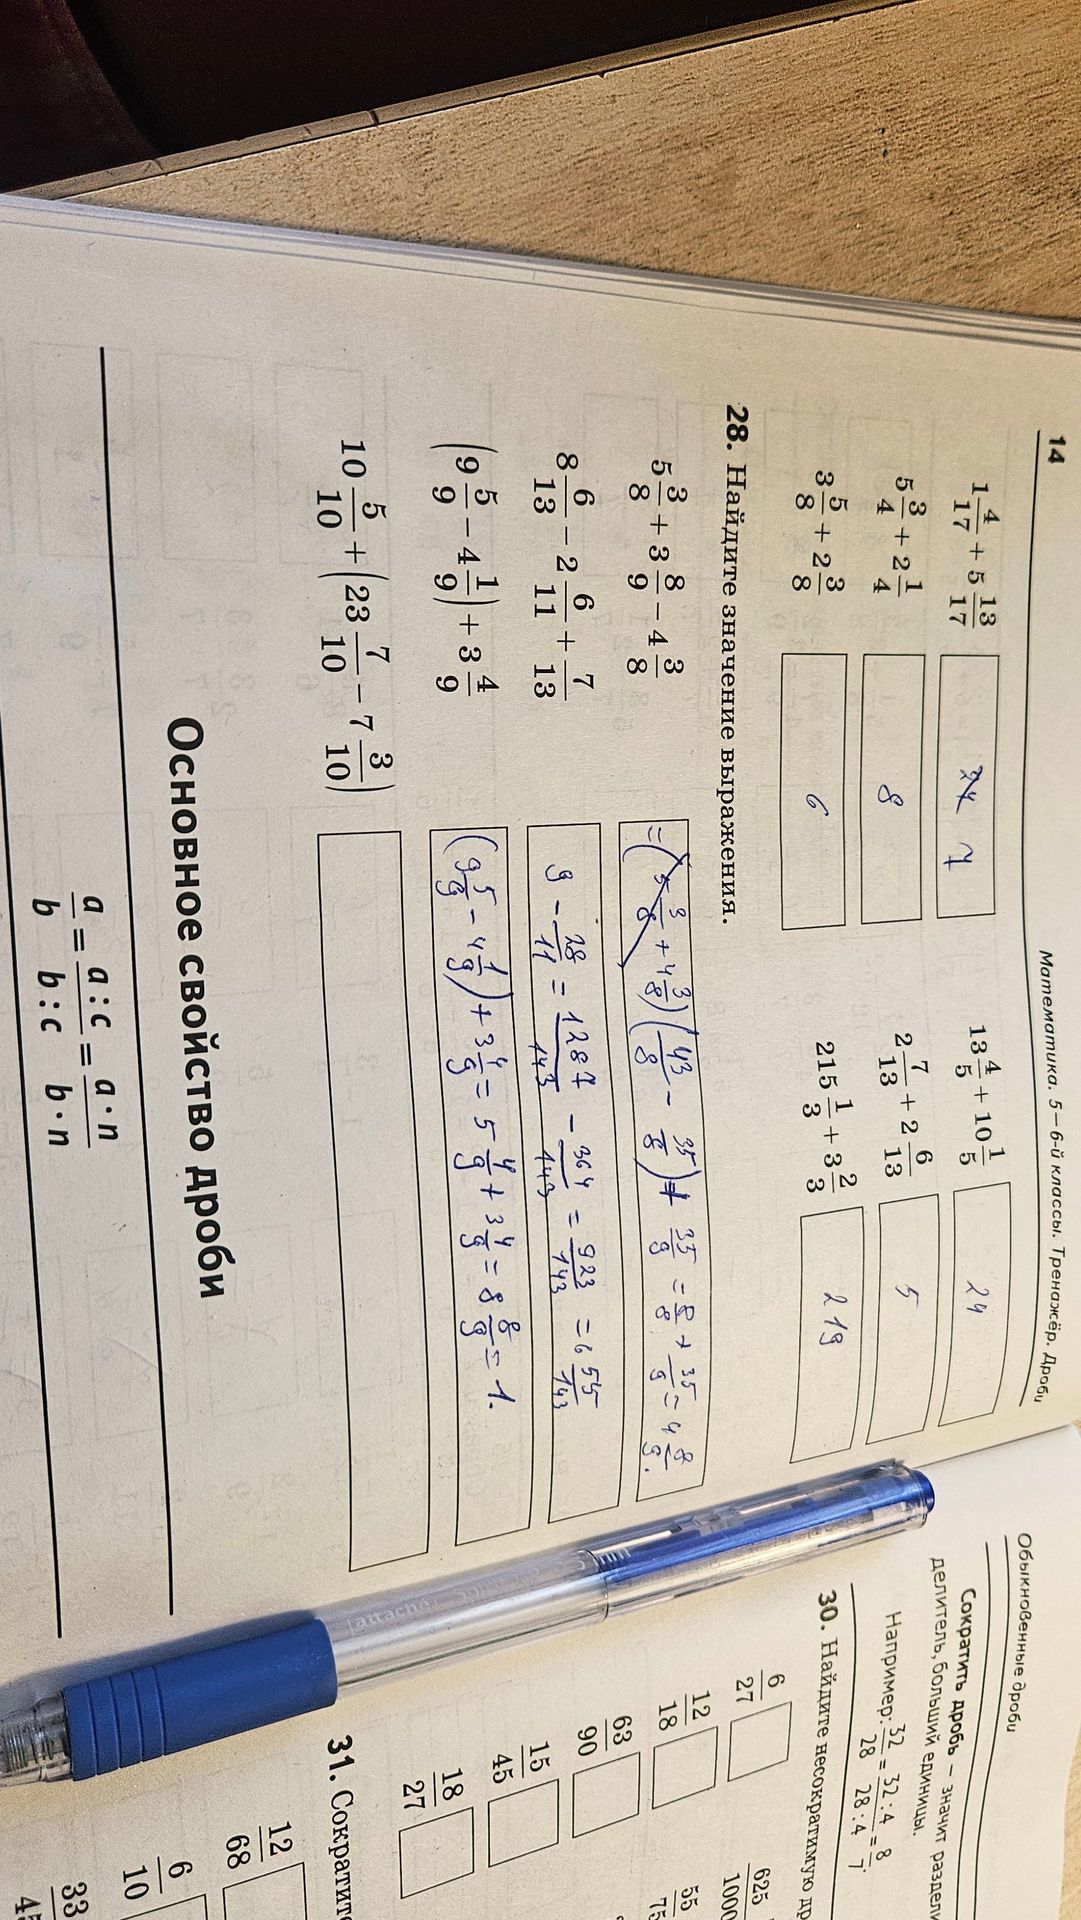 14
Математика. 5–6-й классы. Тренажёр. Дроби
1 4/17 + 5 13/17
7
13 4/5 + 10 1/5
24
5 3/4 + 2 1/4
8
2 7/13 + 2 6/13
5
3 5/8 + 2 3/8
6
215 1/3 + 3 2/3
219
28. Найдите значение выражения.
5 3/8 + 3 8/9 − 4 3/8
= (5 3/8 + 4 3/8) (43/8 − 35/8) + 35/9 = 8/8 + 35/9 = 4 8/9.
8 6/13 − 2 6/11 + 7/13
9 − 28/11 = 1287/143 − 364/143 = 923/143 = 6 55/143
(9 5/9 − 4 1/9) + 3 4/9
(9 5/9 − 4 1/9) + 3 4/9 = 5 4/9 + 3 4/9 = 8 8/9 = 1.
10 5/10 + (23 7/10 − 7 3/10)
Основное свойство дроби
a/b = a : c/b : c = a · n/b · n
Обыкновенные дроби
Сократить дробь – значит раздели
делитель, больший единицы.
Например: 32/28 = 32 : 4/28 : 4 = 8/7.
30. Найдите несократимую др
6/27
625/1000
12/18
55/75
63/90
15/45
18/27
31. Сократите
12/68
6/10
33
attache